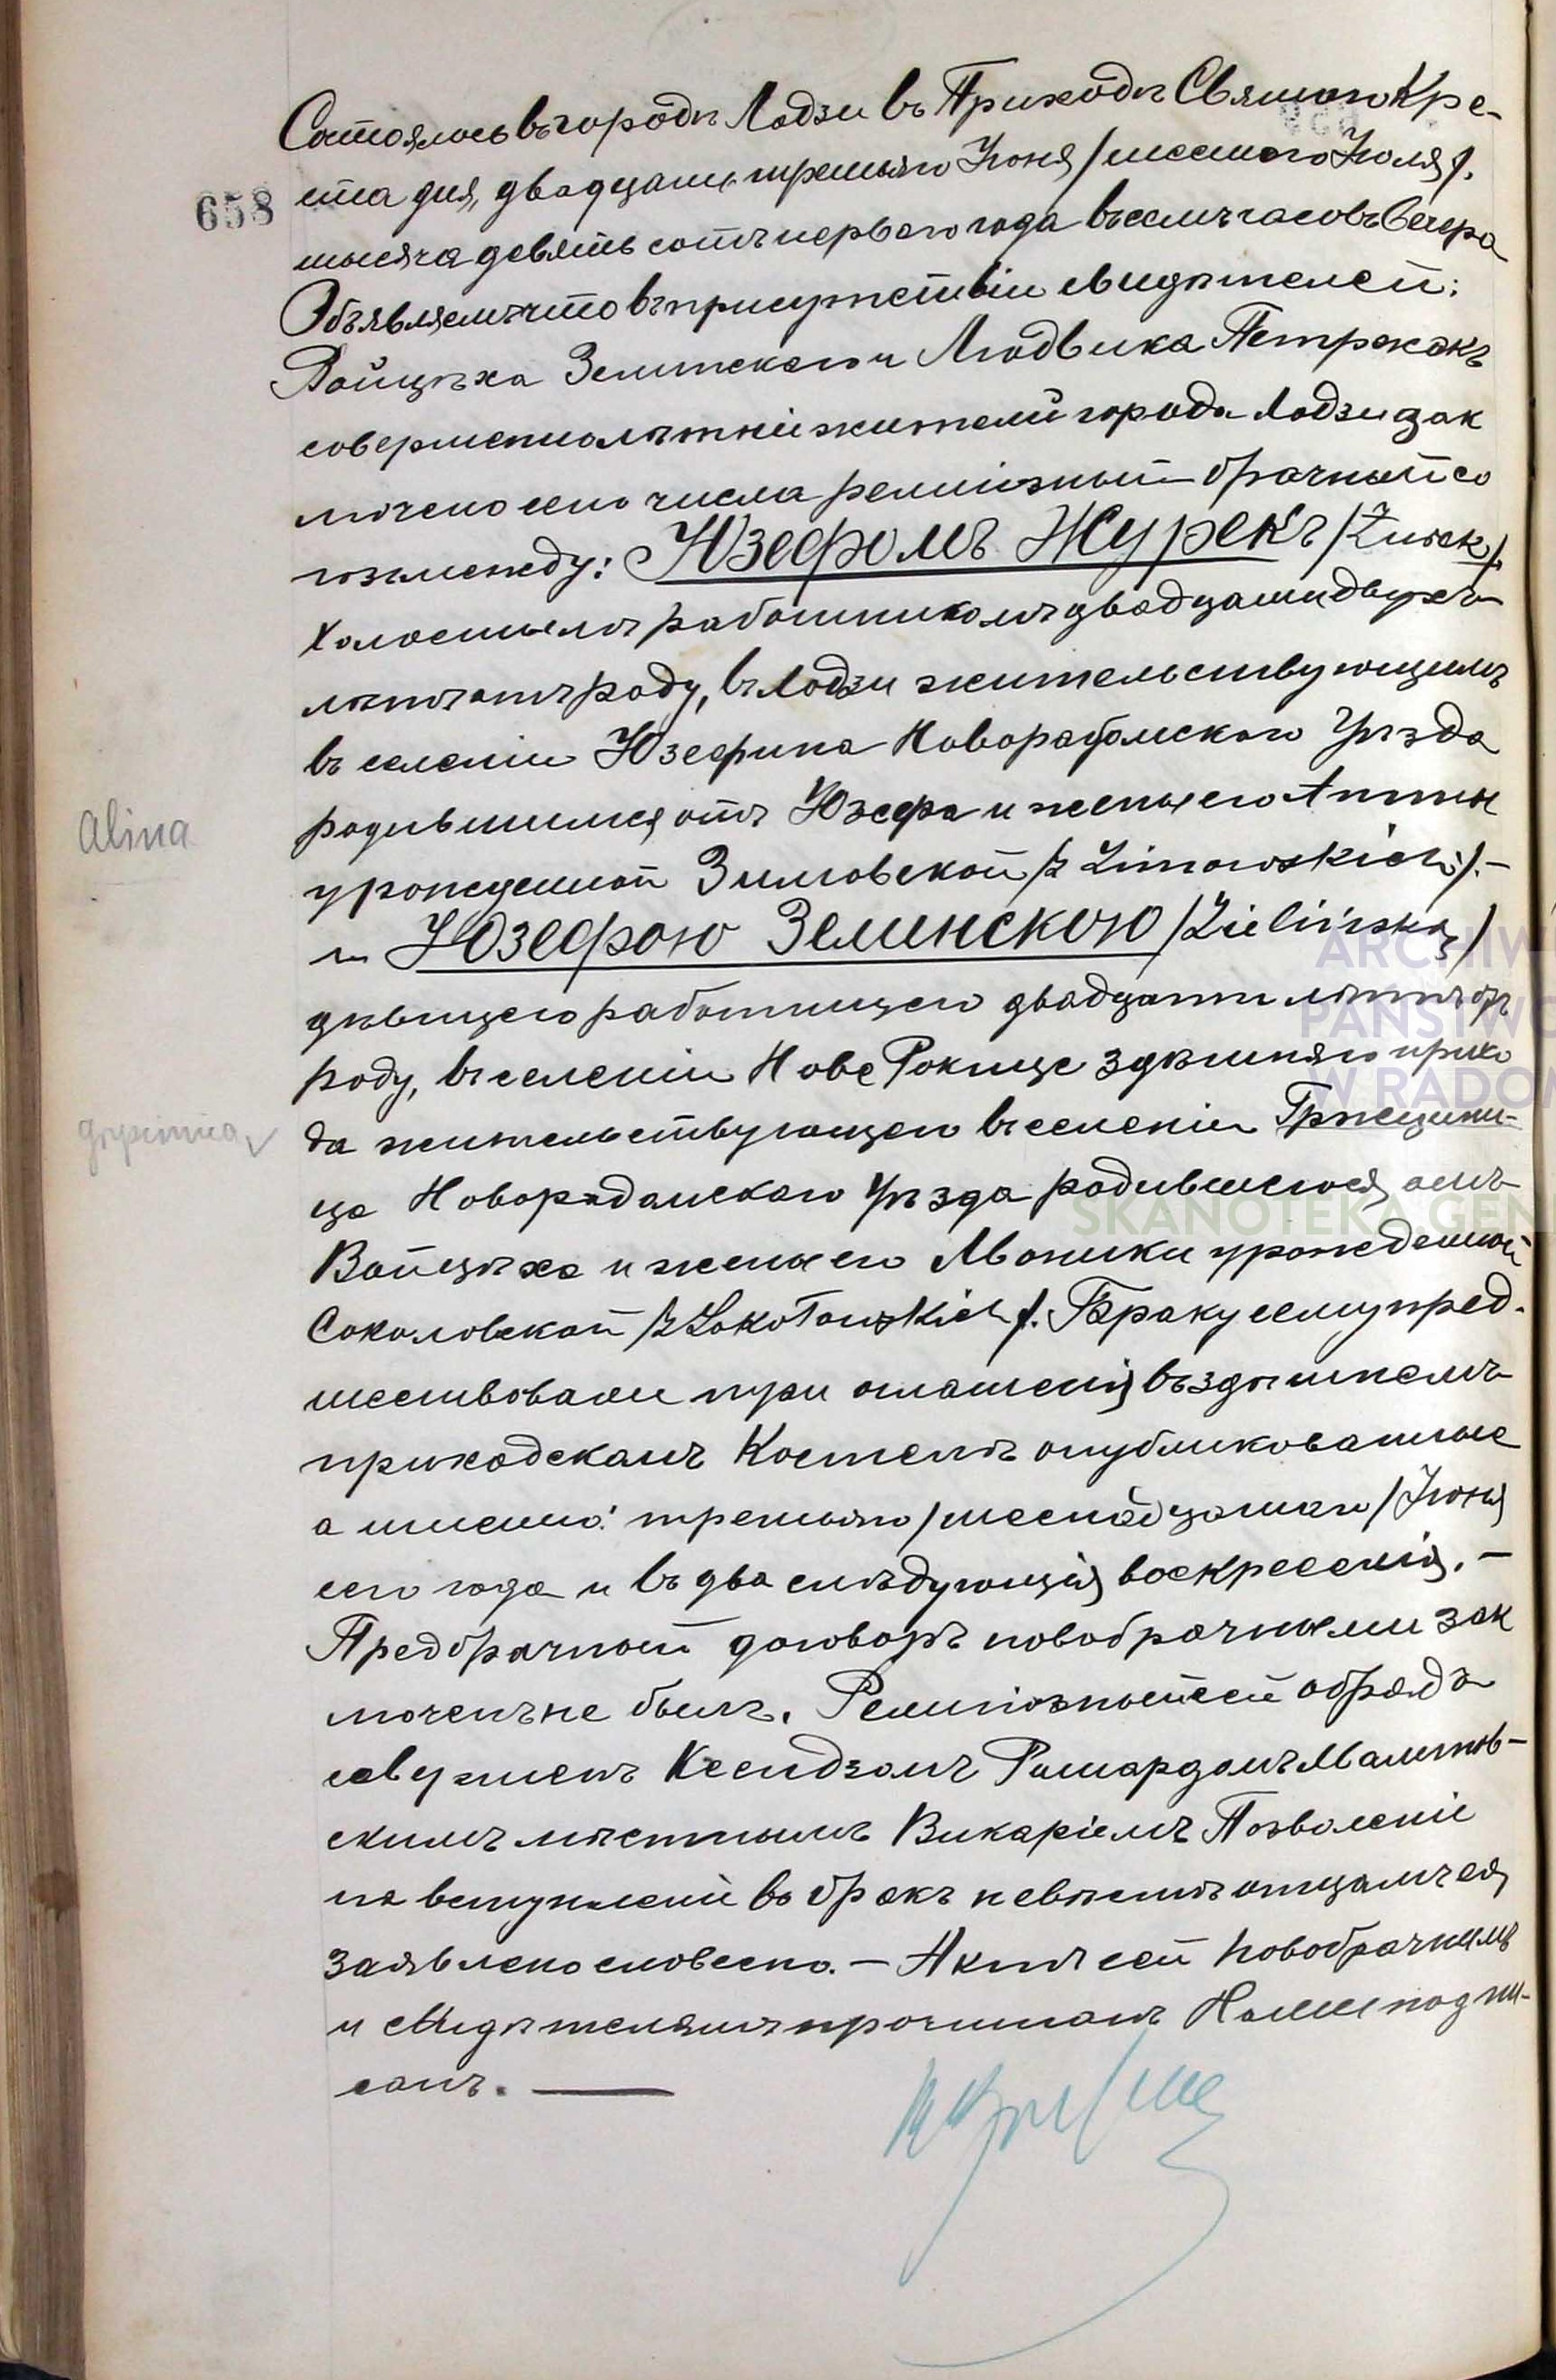 Состоялось въ городѣ Лодзи въ Приходѣ Святого Кре-
658
ста дня, двадцать третьяго Іюня /шестого Іюля/.
тысяча девять сотъ перваго года въ семь часовъ вечера
Объявляемъ что въ присутствіи свидѣтелей:
Войцѣха Зелинскаго и Людвика Петржакъ
совершеннолѣтніе жители города Лодзи зак
лючено сего числа религіозный брачный со
юзъ между: Юзефомъ Журекъ /Żurek/.
холостымъ работникомъ двадцати двухъ
лѣтъ отъ роду, въ Лодзи жительствующимъ
въ селеніи Юзефина Новорадомскаго Уѣзда
родившимся отъ Юзефа и жены его Анны
Alina
урожденной Зимовской /z Zimowskich/.-
и Юзефою Зелинскою /Zielińską/
дѣвицею работницею двадцати лѣтъ отъ
роду, въ селеніи Нове Рокице здѣшняго прихо
да жительствующею въ селеніи Гржецини-
ца Новорадомскаго Уѣзда родившеюся отъ
Войцѣха и жены его Моники урожденной
Соколовской /z Sokołowskich/. Браку сему пред-
шествовали три оглашенія въ здѣшнемъ
приходскомъ Костелѣ опубликованные
а именно: третьяго /шестнадцатаго/ Іюня
сего года и въ два слѣдующія воскресенія.-
Предбрачный договоръ новобрачными зак
люченъ не былъ. Религіозный сей обрядъ
совершенъ Ксендзомъ Рышардомъ Малинов-
скимъ мѣстнымъ Викаріемъ Позволеніе
на вступленіе въ бракъ невѣстѣ отцомъ ея
заявлено словесно.- Актъ сей новобрачнымъ
и свидѣтелямъ прочитанъ Нами подпи-
санъ.
ARCHIW
PAŃSTWO
W RADOM
SKANOTEKA.GEN